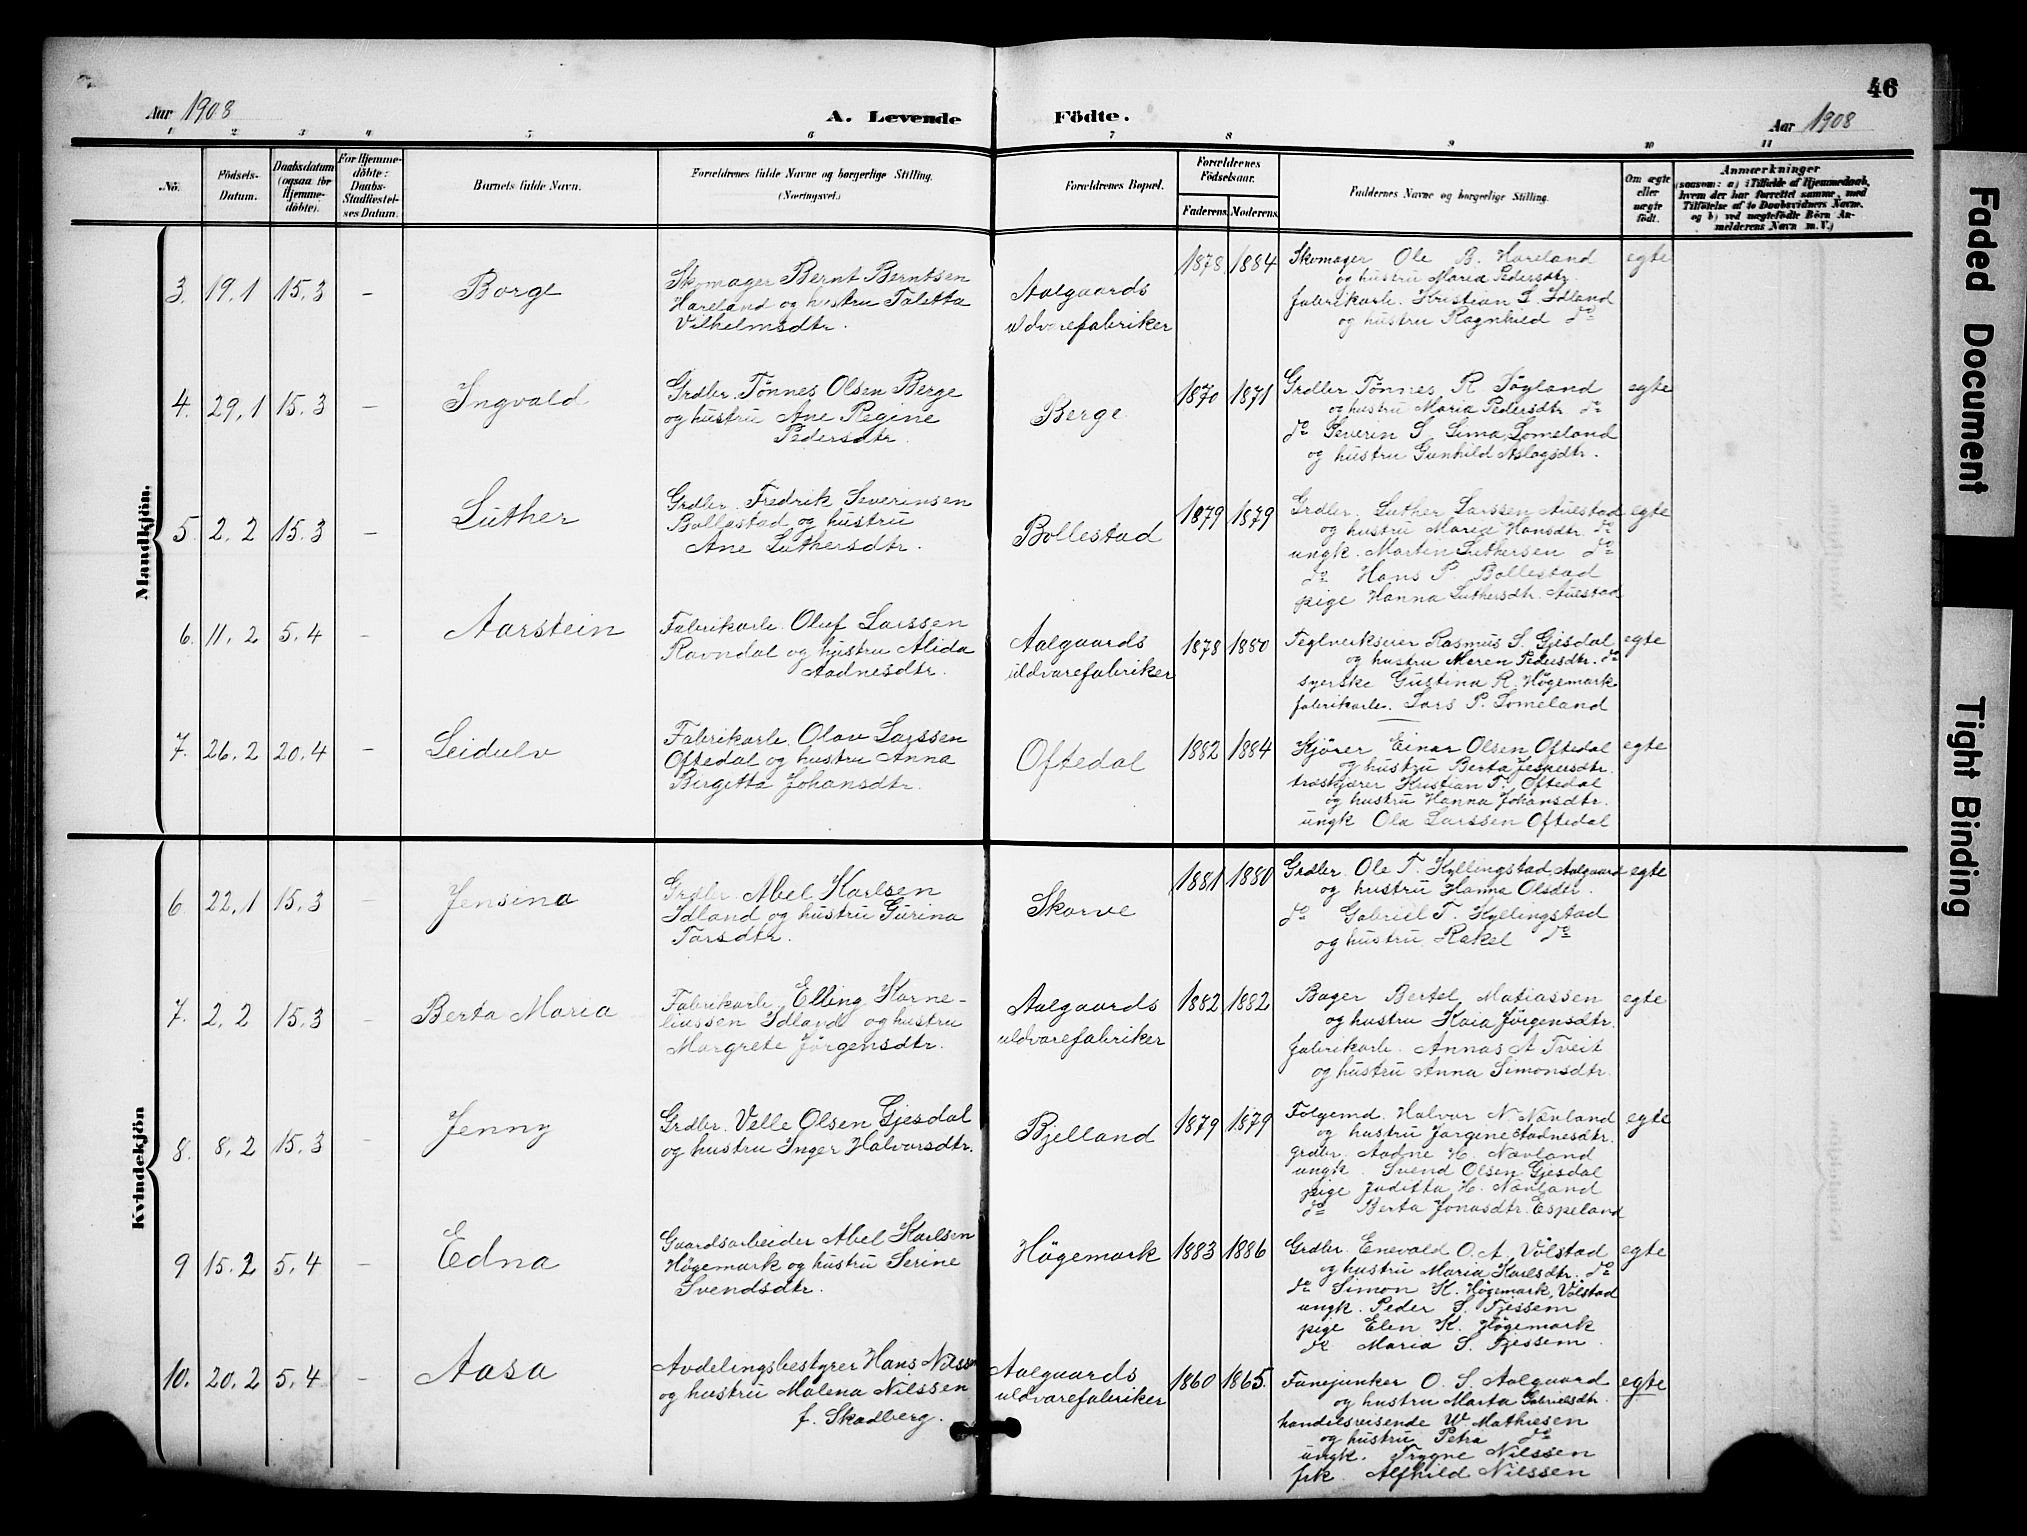 46
Aar 1908
A. Levende
Födte.
Aar 1908
1 2 3 4 5 6 7 8 9 10 11
No.
Födsels-
Datum.
Daabsdatum
(ogsaa for
Hjemme-
döbte).
For Hjemme-
döbte:
Daabs-
Stadfæstel-
ses Datum.
Barnets fulde Navn.
Forældrenes fulde Navne og borgerlige Stilling.
(Næringsvei.)
Forældrenes Bopæl.
Forældrenes
Födselsaar.
Faderens.
Moderens.
Faddernes Navne og borgerlige Stilling.
Om ægte
eller
uægte
födt.
Anmærkninger
(saasom: a) i Tilfælde af Hjemmedaab,
hvem der har forrettet samme, med
Tilföielse af to Daabsvidners Navne,
og b) ved uægtefödte Börn An-
melderens Navn m. V.)
Mandkjön.
3. 19.1 15.3 –
Borge
Skomager Bernt Berntsen
Hareland og hustru Taletta
Vilhelmsdtr.
Aalgaards
uldvarefabriker
1878 1884
Skomager Ole B. Hareland
og hustru Maria Pedersdtr.
fabrikarb. Kristian S. Idland
og hustru Ragnhild do
egte
4. 29.1 15.3 –
Ingvald
Grdbr. Tønnes Olsen Berge
og hustru Ane Regine
Pedersdtr.
Berge
1870 1871
Grdbr Tønnes R Søyland
og hustru Maria Pedersdtr do
do Severin S. Lima, Lomeland
og hustru Gunhild Aslagsdtr.
egte
5. 2.2 15.3 –
Luther
Grdbr. Fredrik Severinsen
Bollestad og hustru
Ane Luthersdtr.
Bollestad
1879 1879
Grdbr. Luther Larssen Auestad
og hustru Maria Hansdtr. do
ungk. Martin Luthersen do
do Hans P. Bollestad
pige Hanna Luthersdtr. Auestad
egte
6. 11.2 5.4 –
Aarstein
Fabrikarb. Oluf Larssen
Ravndal og hustru Alida
Aadnesdtr.
Aalgaards
uldvarefabriker
1878 1880
Teglverkseier Rasmus S. Gjesdal
og hustru Maren Pedersdtr. do
syerske Gustina R. Høgemark
fabrikarb. Lars P. Lomeland
egte
7. 26.2 20.4 –
Leidulv
Fabrikarb. Olav Larssen
Oftedal og hustru Anna
Birgitta Johansdtr.
Oftedal
1882 1884
Kjører Einar Olsen Oftedal
og hustru Berta Jespersdtr.
træskjærer Kristian T. Oftedal
og hustru Hanna Johansdtr.
ungk Ola Larssen Oftedal
egte
Kvindekjön
6. 22.1 15.3 –
Jensina
Grdbr. Abel Karlsen
Idland og hustru Gurina
Larsdtr.
Skorve
1881 1880
Grdbr. Ole T. Kyllingstad, Aalgaard
og hustru Hanna Olsdtr.
do Gabriel T. Kyllingstad
og hustru Rakel do
egte
7. 2.2 15.3 –
Berta Maria
Fabrikarb. Elling Korne-
liussen Idland og hustru
Margrete Jørgensdtr.
Aalgaards
uldvarefabriker
1882 1882
Bager Bertel Matiassen
og hustru Kaia Jørgensdtr.
fabrikarb. Annas A Tveit
og hustru Anna Simonsdtr.
egte
8. 8.2 15.3 –
Jenny
Grdbr. Velle Olsen Gjesdal
og hustru Inger Halvorsdtr.
Bjelland
1879 1879
Følgemd. Halvor N. Nævland
og hustru Jorgine Aadnesdtr.
grdbr. Aadne H. Nævland
ungk. Svend Olsen Gjesdal
pige Juditta H. Nævland
do Berta Jonasdtr. Espeland
egte
9 15.2 5.4 –
Edna
Gaardsarbeider Abel Karlsen
Høgemark og hustru Serine
Svendsdtr.
Høgemark
1883 1886
Grdbr. Enevald O. A. Vølstad
og hustru Maria Karlsdtr. do
do Simon K. Høgemark, Vølstad
ungk. Peder S. Fjessem
pige Elen K. Høgemark
do Maria S. Fjessem.
egte
10. 20.2 5.4 –
Aasa
Avdelingsbestyrer Hans Nilssen
og hustru Malena Nilssen
f. Skadberg.
Aalgaards
uldvarefabriker
1860 1865.
Fanejunker O. S. Aalgaard
og hustru Marta Gabrielsdtr.
handelsreisende W. Mathiesen
og hustru Petra do
ungk. Trygve Nilssen
frk. Alfhild Nilssen
egte
Faded Document
Tight Binding